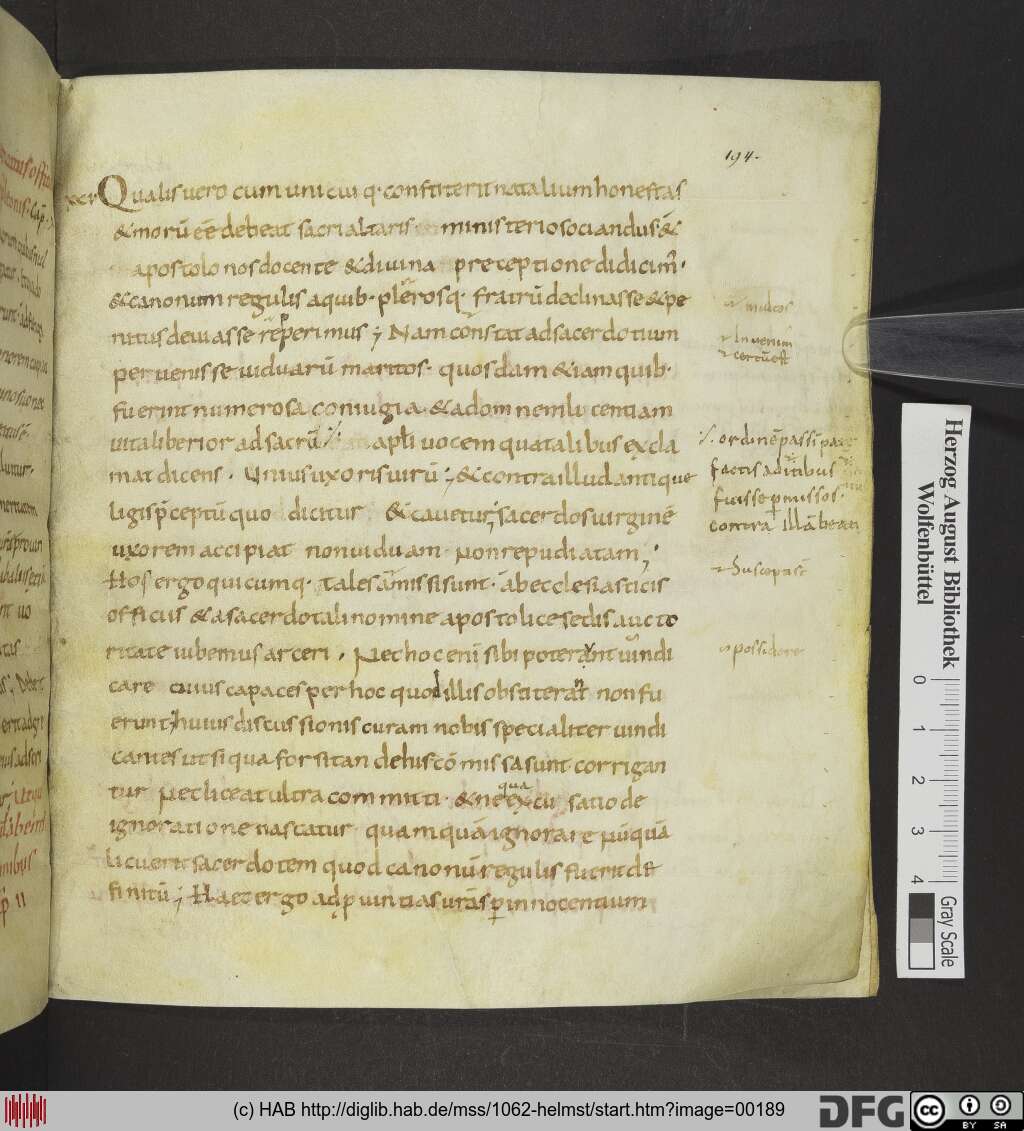 194.
Qualis uero cum uni cui q· constiterit natalium honestas
& morū eē debeat sacri altaris ministerio sociandus &
apostolo nos docente & diuina preceptione didicim·
& canonum regulis a quib· plerosq· fratrū declinasse & pe
nitus deuiasse repperimus ; Nam constat ad sacerdotium
peruenisse uiduarū maritos· quosdam & iam quib·
fuerint numerosa coniugia· & ad omnem licentiam
uita liberior ad sacrū apli uocem qua talibus excla
mat dicens · Unius uxoris uirū ; & contra illud antique
legis p̄ceptū quo dicitur & cauetur ; sacerdos uirginē
uxorem accipiat non uiduam · non repudiatam ;
Hos ergo quicumq· tales amissi sunt · ab ecclesiasticis
officiis & a sacerdotali nomine apostolice sedis aucto
ritate iubemus arceri · Nec hoc enī sibi poterunt uindi
care cuius capaces per hoc quod illis obstiterat non fu
erunt ; huius discussionis curam nobis specialiter uindi
cantes ut si qua forsitan de his cō missa sunt corrigan
tur nec liceat ultra committi · & ne qua excu satio de
ignoratione nascatur quamquā ignorare nūquā
licuerit sacerdotem quod canonū regulis fuerit de
finitū ; Haec ergo ad p uintias urās p innocentium
multos
Inuenim
certū est
ordinē passi pate
factis aditibus
fuisse p missos·
contra illā beati
suscepist
possidere
Herzog August Bibliothek
Wolfenbüttel
0 1 2 3 4
Gray Scale
(c) HAB http://diglib.hab.de/mss/1062-helmst/start.htm?image=00189
DFG
cc BY SA